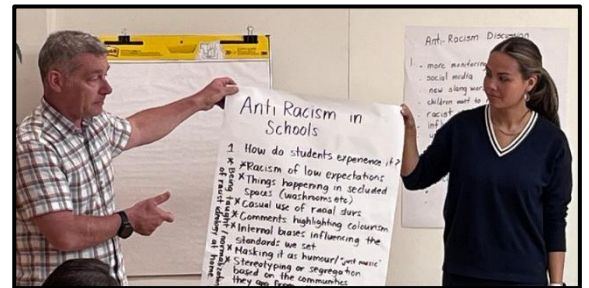 Anti Racism in
Schools
1 How do students experience it?
* Racism of low expectations
* Things happening in secluded
spaces (washrooms etc)
* Casual use of racial slurs
* Comments highlighting colourism
* Internal biases influencing the
standards we set
* Masking it as humour/"just music"
* Stereotyping or segregation
based on the communities
they are from
* Being taught/normalization
of racist ideology at home
Anti-Racism Discussion
1. - more monitoring
- social media
- new slang wor
- children want to
racist
infl